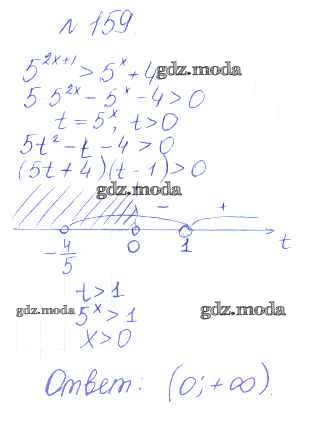 № 159.
5^{2x+1} > 5^x + 4
gdz.moda
5 5^{2x} - 5^x - 4 > 0
t = 5^x, t > 0
5t² - t - 4 > 0
(5t + 4)(t - 1) > 0
gdz.moda
- +
-4/5 0 1 t
t > 1
gdz.moda 5^x > 1 gdz.moda
x > 0
Ответ: (0; +∞).